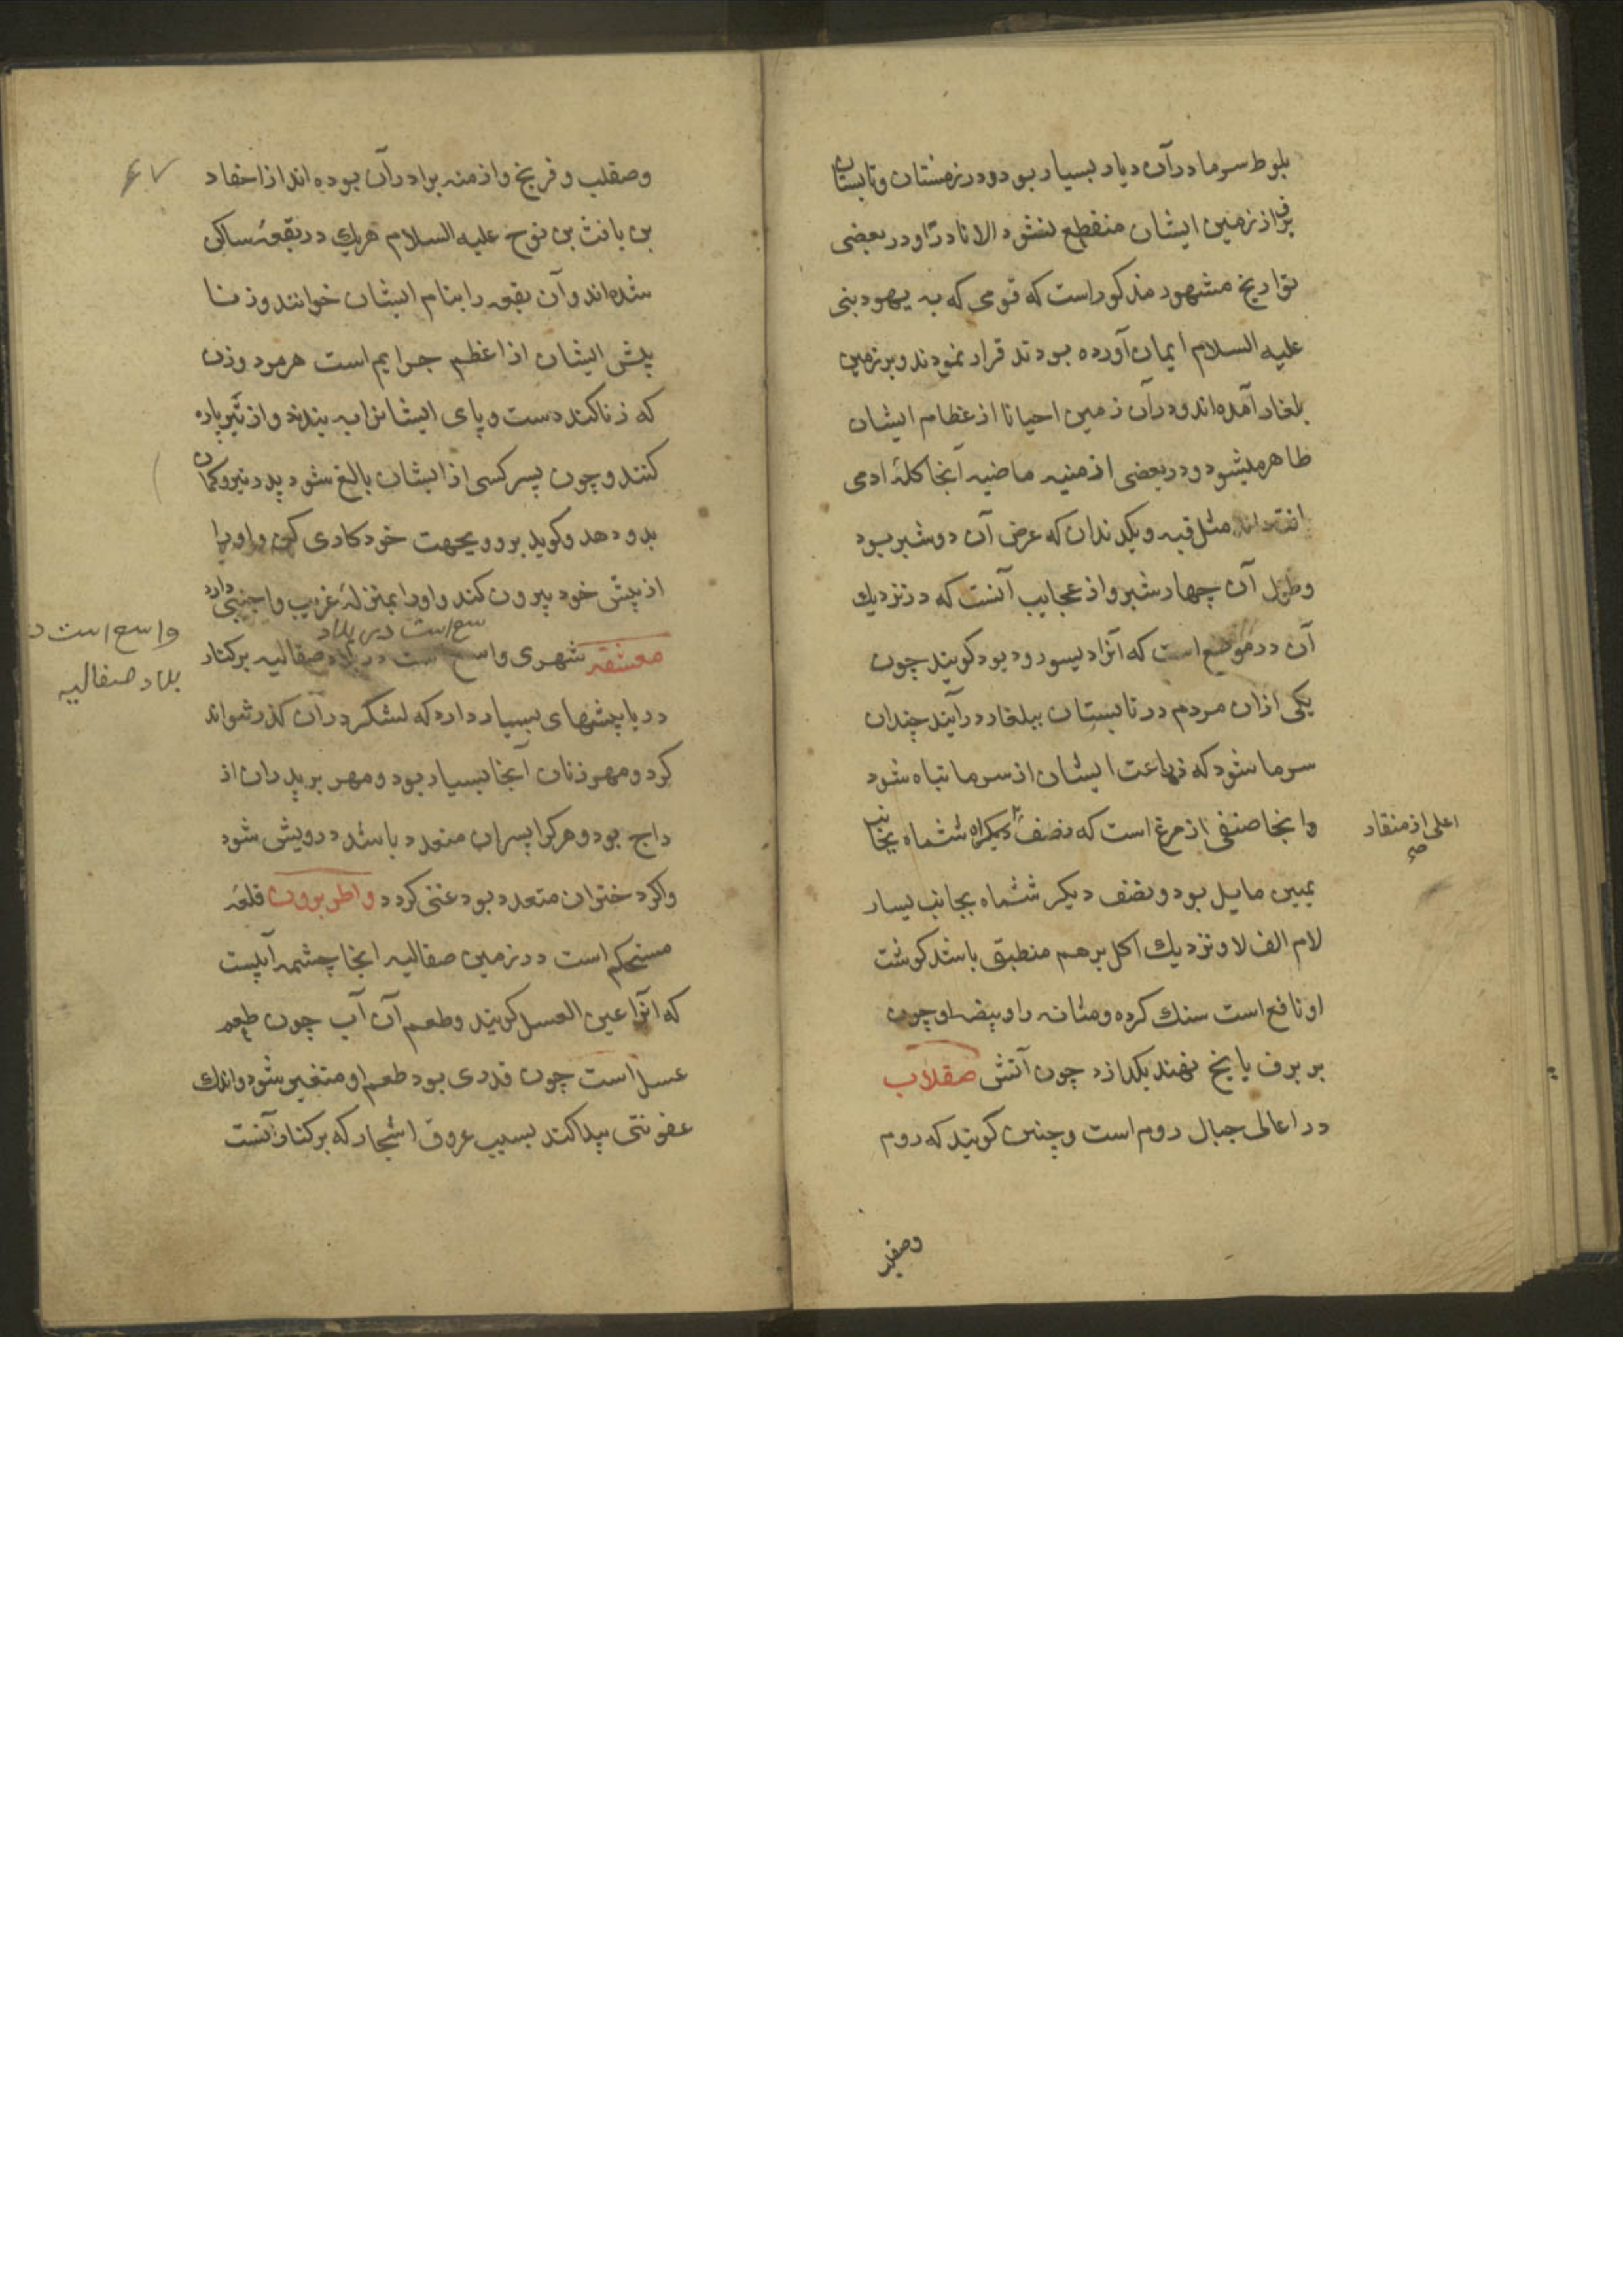 بلوط سرما در آن دیار بسیار بود و در زمستان و تابستان
برف از زمین ایشان منقطع نشود الا نادرًا و در بعضی
تواریخ مشهور مذکور است که قومی که به یهود بنی
علیه السلام ایمان آورده بودند قرار نمودند و بر زمین
بلغار آمده‌اند و در آن زمین احیانا از عظام ایشان
ظاهر میشود و در بعضی از منیه ماضیه آنجا کلهٔ ادمی
مثل قبه و یکدندان که عرض آن دو شبر بود
وطول آن چهار شبر و از عجایب آنست که در نزدیک
آن در موضع است که آنرا دیسور و دیود کویند چون
یکی ازان مردم در تابستان ببلغار در آیند چندان
سرما شود که زراعت ایشان از سرما تباه شود
وانجا صنفی از مرغ است که نصف دیکراه ششماه بجانب
اعلی از منقار
صح
یمین مایل بود و نصف دیکر ششماه بجانب یسار
لام الف لا ونزدیک اکل بر هم منطبق باشد کوشت
او نافع است سنک کرده و مثانه را و بیضه او چون
بر برف یا یخ نهند بکدازد چون آتش صقلاب
در اعالی جبال روم است و چنین کویند که روم
وصقلب
۶۷
وصقلب و فرنج و ازمنه برادر آن بوده اند از احفاد
بن یافث بن نوح علیه السلام هریک در بقعهٔ ساکن
شده‌اند و آن بقعه را بنام ایشان خوانند و زنا
پیش ایشان از اعظم جرایم است هر مرد و زن
که زنا کند دست و پای ایشانرا به بندند و از تیر پاره
کنند و چون پسر کسی از ایشان بالغ شود پدر تیر و کمان
بدو دهد و کوید برو و بجهت خود کاری کن و او را
از پیش خود بیرون کند و او را بمنزلهٔ غریب و اجنبی دارد
سع است در بلاد
معشقه شهری واسع است در بلاد صقالیه بر کنار
واسع است د
بلاد صقالیه
دریا پیشهای بسیار دارد که لشکر در آن کذر نتواند
کرد و مهر زنان آنجا بسیار بود و مهر بر پدران از
داج بود و هر کرا پسران متعدد باشد درویش شود
واکر دختران متعدد بود غنی کردد واطربرون قلعه
مستحکم است در زمین صقالیه انجا چشمه آبیست
که آنرا عین العسل کویند و طعم آن آب چون طعم
عسل است چون قدری بود طعم او متغیر شود و اندک
عفونتی پیدا کند بسبب عروق اشجار که بر کنار آنست